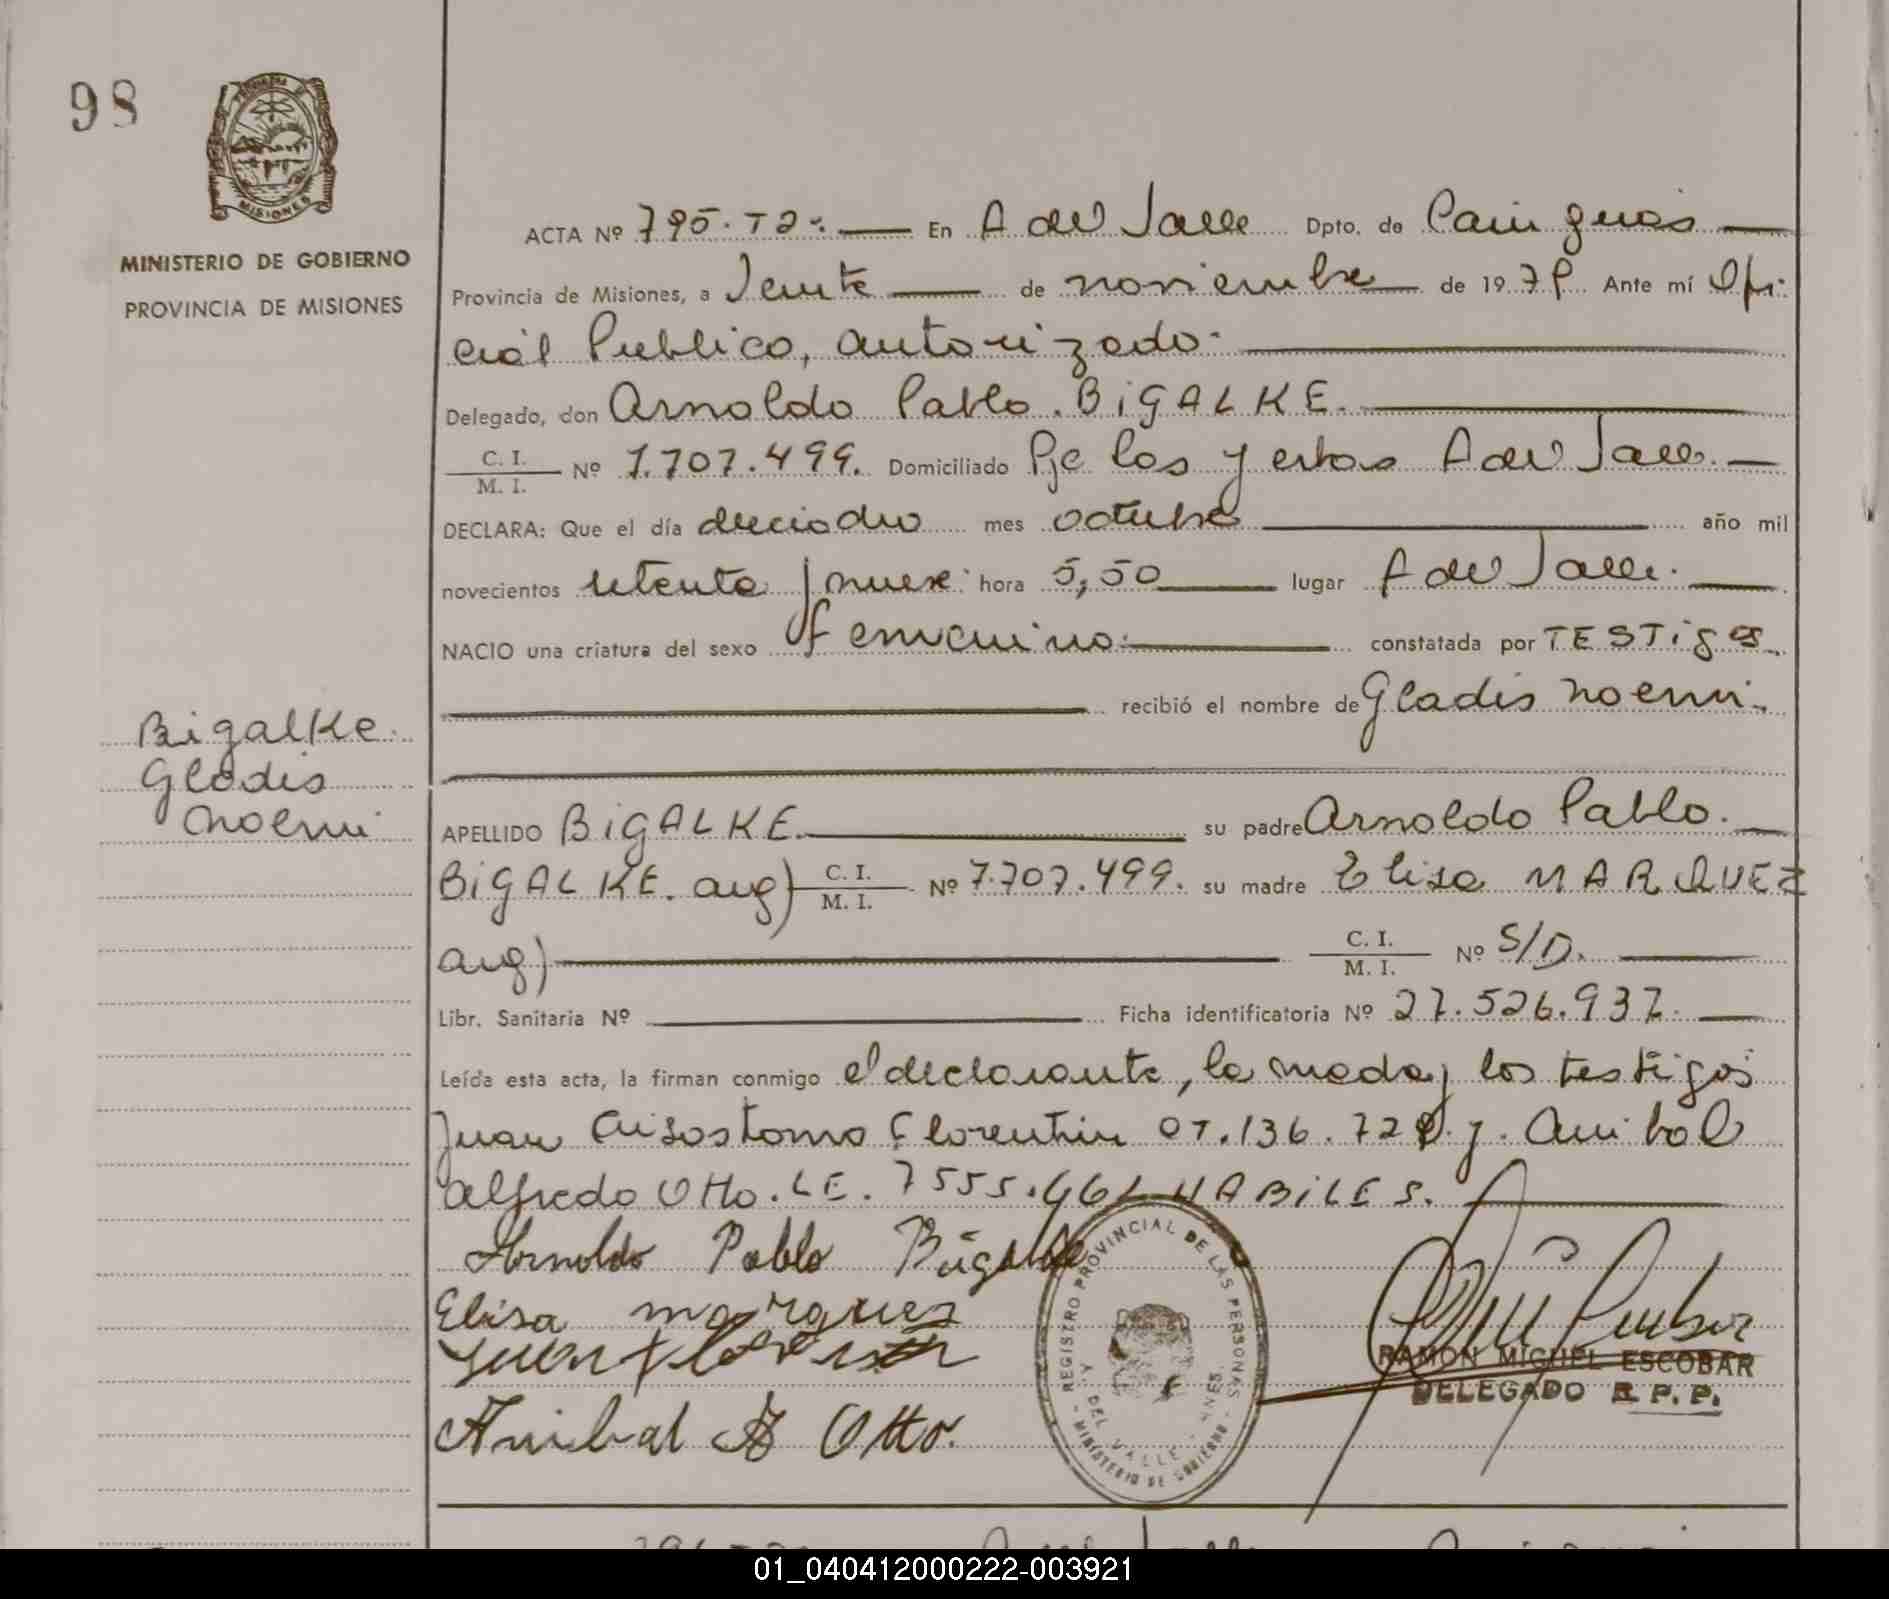 98
MISIONES
MINISTERIO DE GOBIERNO
PROVINCIA DE MISIONES
ACTA Nº 795. T2: En A del Valle Dpto. de Cainguás
Provincia de Misiones, a Veinte de noviembre de 1979. Ante mí Ofi-
cial Publico, autorizado.
Delegado, don Arnoldo Pablo. BiGALKE.
C. I.
M. I. Nº 7.707.499. Domiciliado Pje los Yerbas A del Valle.
DECLARA: Que el día dieciocho mes octubre año mil
novecientos setenta y nueve: hora 5,50 lugar A del Valle.
NACIO una criatura del sexo femenino: constatada por TESTigos
recibió el nombre de Gladis Noemi.
Bigalke.
Gladis
Noemi
APELLIDO BiGALKE. su padre Arnoldo Pablo.
BiGALKE. arg) C. I.
M. I. Nº 7.707.499. su madre Elisa MARQUEZ
arg) C. I.
M. I. Nº S/D.
Libr. Sanitaria Nº Ficha identificatoria Nº 27.526.937.
Leída esta acta, la firman conmigo el declarante, la madre y los testigos
Juan Crisostomo Florentin 07.136.72 y. Anibal
Alfredo Otto. LE. 7555. HABiLES.
Arnoldo Pablo Bigalke
Elisa marquez
Juan Florentin
Anibal A Otto.
REGISTRO PROVINCIAL DE LAS PERSONAS
A. DEL VALLE - MNES.
- MINISTERIO DE GOBIERNO -
RAMON MIGUEL ESCOBAR
DELEGADO R. P. P.
01_040412000222-003921